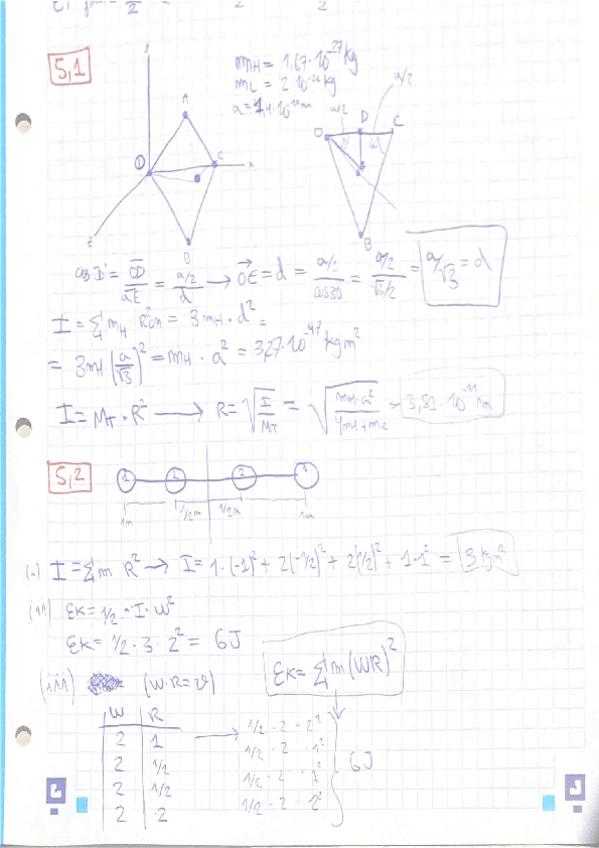 5,1
mH = 1,67·10^-27 kg
mC = 2·10^-26 kg
A
a/2
a/2
D C
O C x
E
B
z
B
cos D = OD/OE = (a/2)/d → OE = d = (a/2)/cos30 = (a/2)/(√3/2) = a/√3 = d
I = Σ mH · R²cm = 3mH · d² =
= 3mH (a/√3)² = mH · a² = 3,27·10^-47 kgm²
I = MT · R² → R = √(I/MT) = √(mH·a²/(4mH+mC)) = 3,81·10^-11 m
5,2
1 2 2 1
1m 1/2m 1/2m 1m
(i) I = Σ m R² → I = 1·(-1)² + 2(-1/2)² + 2(1/2)² + 1·1² = 3 kgm²
(ii) Ek = 1/2 · I · W²
Ek = 1/2 · 3 · 2² = 6J
Ek = Σ m (WR)²
(iii) (W·R = v)
W R
2 1 → 1/2 · 2 · 2²
2 1/2 1/2 · 2 · 1²
2 1/2
2 2 1/2 · 2 · 2²
6J